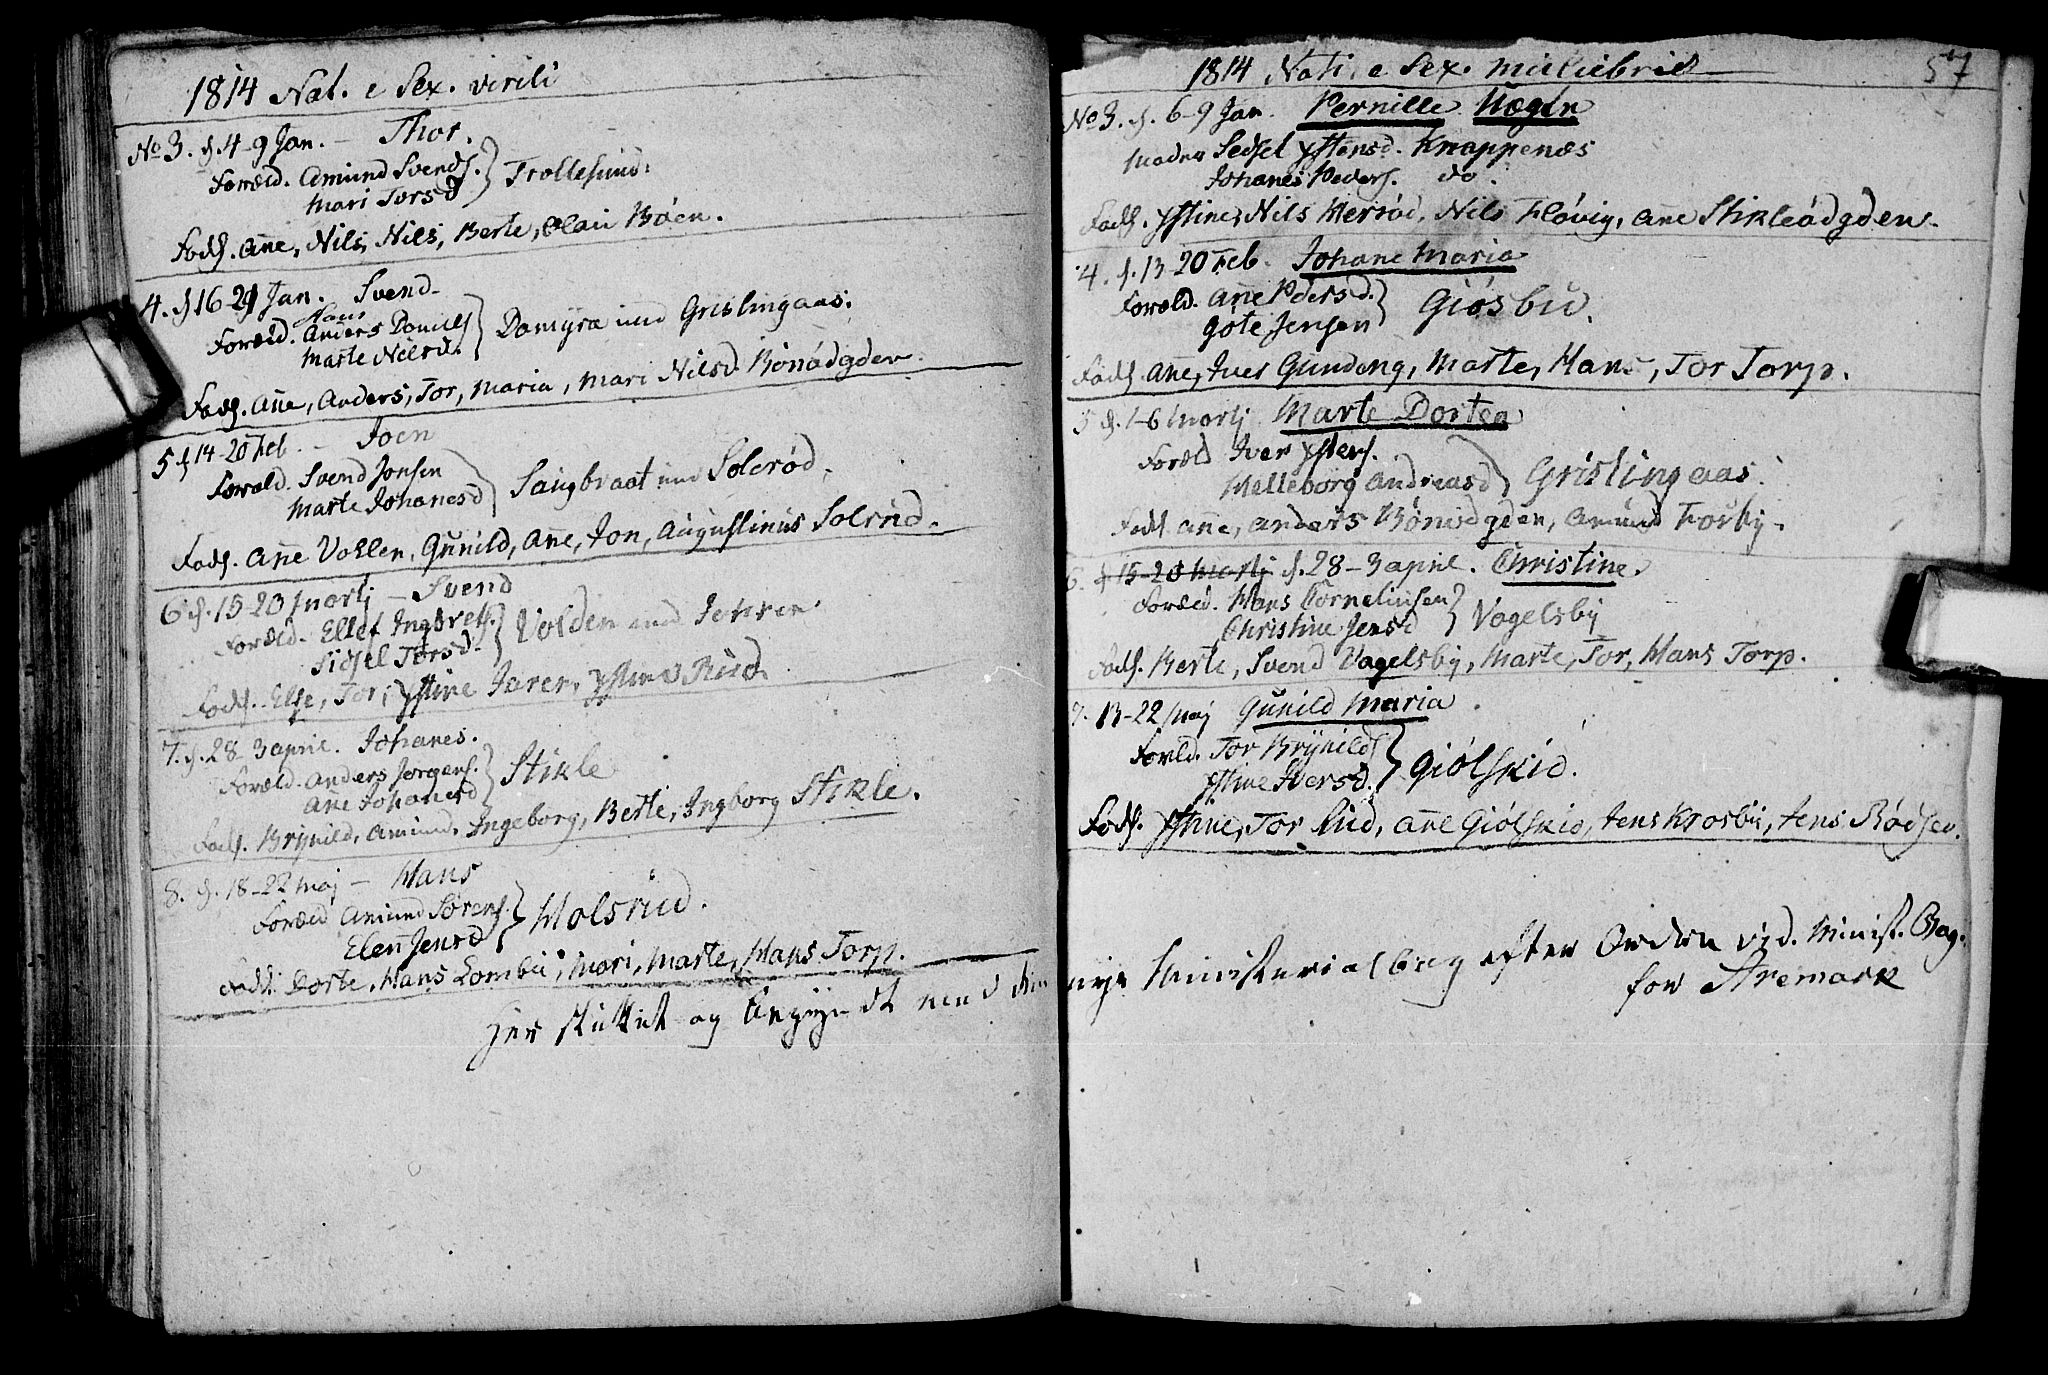 1814 Nat. e Sex. virili
No 3. f. 4-9 Jan. – Thor.
Foræld. Amund Svends.
Mari Torsd } Trollesund.
Fadd. Añe, Nils, Nils, Berte, Olaii Böen.
4. f 16-21 Jan. Svend
Hans
Foræld. Anders Daniels
Marte Nilsd. } Damyra und Grislingaas.
Fadd. Añe, Anders, Tor, Maria, Mari Nilsd. Bönödgden.
5 f 14-20 Feb. – Joen
Foræld. Svend Jonsen
Marte Johanesd } Sangbraat und Solerød.
Fadd. Añe Vollen, Gunild, Añe, Jon, Augustinus Solrud.
6 f. 15-20 Martj – Svend
Foræld. Ellef Ingbrets.
Sidsel Torsd. } Volden und
Fadd. Else, Tor, Ystine Jarer, Rud.
7. f. 28-3 April. Johanes.
Foræld. Anders Jorgens.
Añe Johanesd } Stikle
Fadd. Brynild, Amund, Ingeborg, Berte, Ingborg Stikle.
8. f. 18-22 Maj – Hans
Foræld Amund Sörens.
Eleñ Jensd } Holsrud.
Fadd. Dorte, Hans Lombu, Mari, Marte, Hans Torp.
Her sluttet og begyndt med den
1814 Nati e Sex. muliebris
57
No 3. f. 6-9 Jan. Pernille Uægte
Moder Sedsel Ystensd. Knappenæs
Johanes Peders. do.
Fadd. Ystine, Nils Hersöd, Nils Flövig, Añe Stikleödgden.
4. f. 13-20 Feb. Johane Maria
Foræld. Añe Pdersd.
Göte Jensen } Giösbu.
Fadd. Añe, Iver Gundeng, Marte, Hans, Tor Torp.
5 f. 1-6 Martj Marte Dortea
Foræld Iver Ystens.
Helleborg Andreasd } Grislingaas.
Fadd. Añe, Anders Bönödgden, Amund Forby.
6. f 15-20 Martj f. 28-3 April. Christine.
Foræld. Hans Cornelinsen
Christine Jensd } Vagelsby
Fadd. Berte, Svend Vagelsby, Marte, Tor, Hans Torp.
7. 13-22 Maj Gunild Maria
Foræld. Tor Brynilds
Ystine Iversd. } Giölskid.
Fadd. Ystine, Tor Rud, Añe Giölskid, Jens Krosby, Jens Rødse.
nye Ministerialbog efter Orden ved. Minist. Bog.
for Aremark